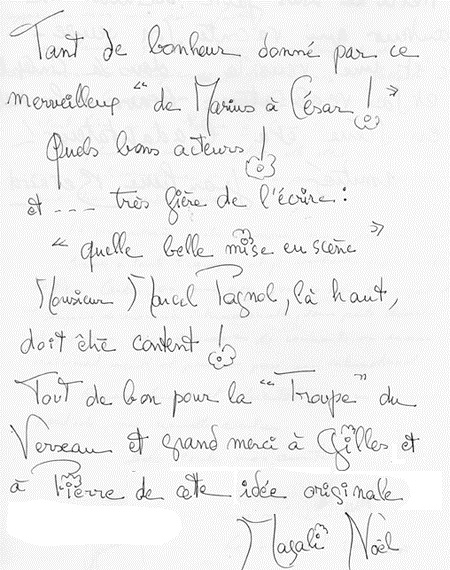 Tant de bonheur donné par ce
merveilleux " de Marius à César ! "
Quels bons acteurs !
et --- très fière de l'écrire :
" quelle belle mise en scène "
Monsieur Marcel Pagnol, là haut,
doit être content !
Tout de bon pour la "Troupe" du
Verseau et grand merci à Gilles et
à Pierre de cette idée originale
Magali Noël